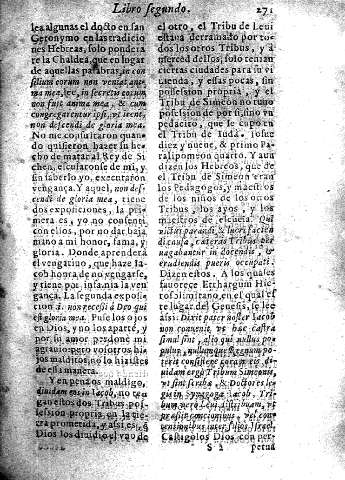 Libro segundo. 271
les algunas el docto en san
Geronymo en las tradicio
nes Hebreas, solo pondera
re la Chaldea, que en lugar
de aquellas palabras, in con
silium eorum non veniat ani
ma mea, leo, in secretis eorum
non fuit anima mea, & cum
congregarentur ipsi, vt irent,
non descendi de gloria mea.
No me consultaron quan
do quisieron hazer su he
cho de matar al Rey de Si
chen, escusaronse de mi, y
sin saberlo yo, executaron
vengança. Y aquel, non des-
cendi de gloria mea, tiene
dos exposiciones, la pri
mera es, y no consenti
con ellos, por no dar baja
mano a mi honor, fama, y
gloria. Donde aprendera
el vengatiuo, que haze Ia
cob honra de no vengarse,
y tiene por infamia la ven
gança. La segunda exposi
cion
est gloria mea. Puse los ojos
en Dios, y no los aparté, y
por su amor perdoné mi
agrauio: pero vosotros hi
jos malditos, no lo hizistes
de essa manera.
Y en pena os maldigo,
diuidam eos in Iacob, no ten
gan estos dos Tribus pos
session propria en la tie
rra prometida, y assi es,
Dios los diuidio, el vno de
el otro, el Tribu de Leui
estaua derramado por to
dos los otros Tribus, y a
merced dellos, solo tenian
ciertas ciudades para su vi
uienda, y essas pocas, sin
possession propria, y el
Tribu de Simeon no tuuo
possession de por si, sino vn
pedacito, que le cupo en
el Tribu de Iuda. Iosue
diez y nueue, & primo Pa-
ralipomeon quarto. Y aun
dizen los Hebreos, que de
el Tribu de Simeon eran
los Pedagogos, y maestros
de los niños de los otros
Tribus, los ayos, y los
maestros de escuela. Qui
victus parandi, & lucri facien
di causa, cæteras Tribus per
uagabantur in docendis, &
erudiendis pueris occupati.
Dizen estos. A los quales
fauorece el Thargum Hie
rosolimitano, en el qual el
te lugar del Genesis, se lee
assi: Dixit pater noster Iacob
non conuenit, vt hæc castra
simul sint, alioqui nullus po
pulus, nullumque regnum po
terit consistere coram eis, di
uidam ergo Tribum Simeonis,
vt sint scribæ, & Doctores le
gis in synagoga Iacob, Tri
Castigolos Dios con per-
S 2 petua